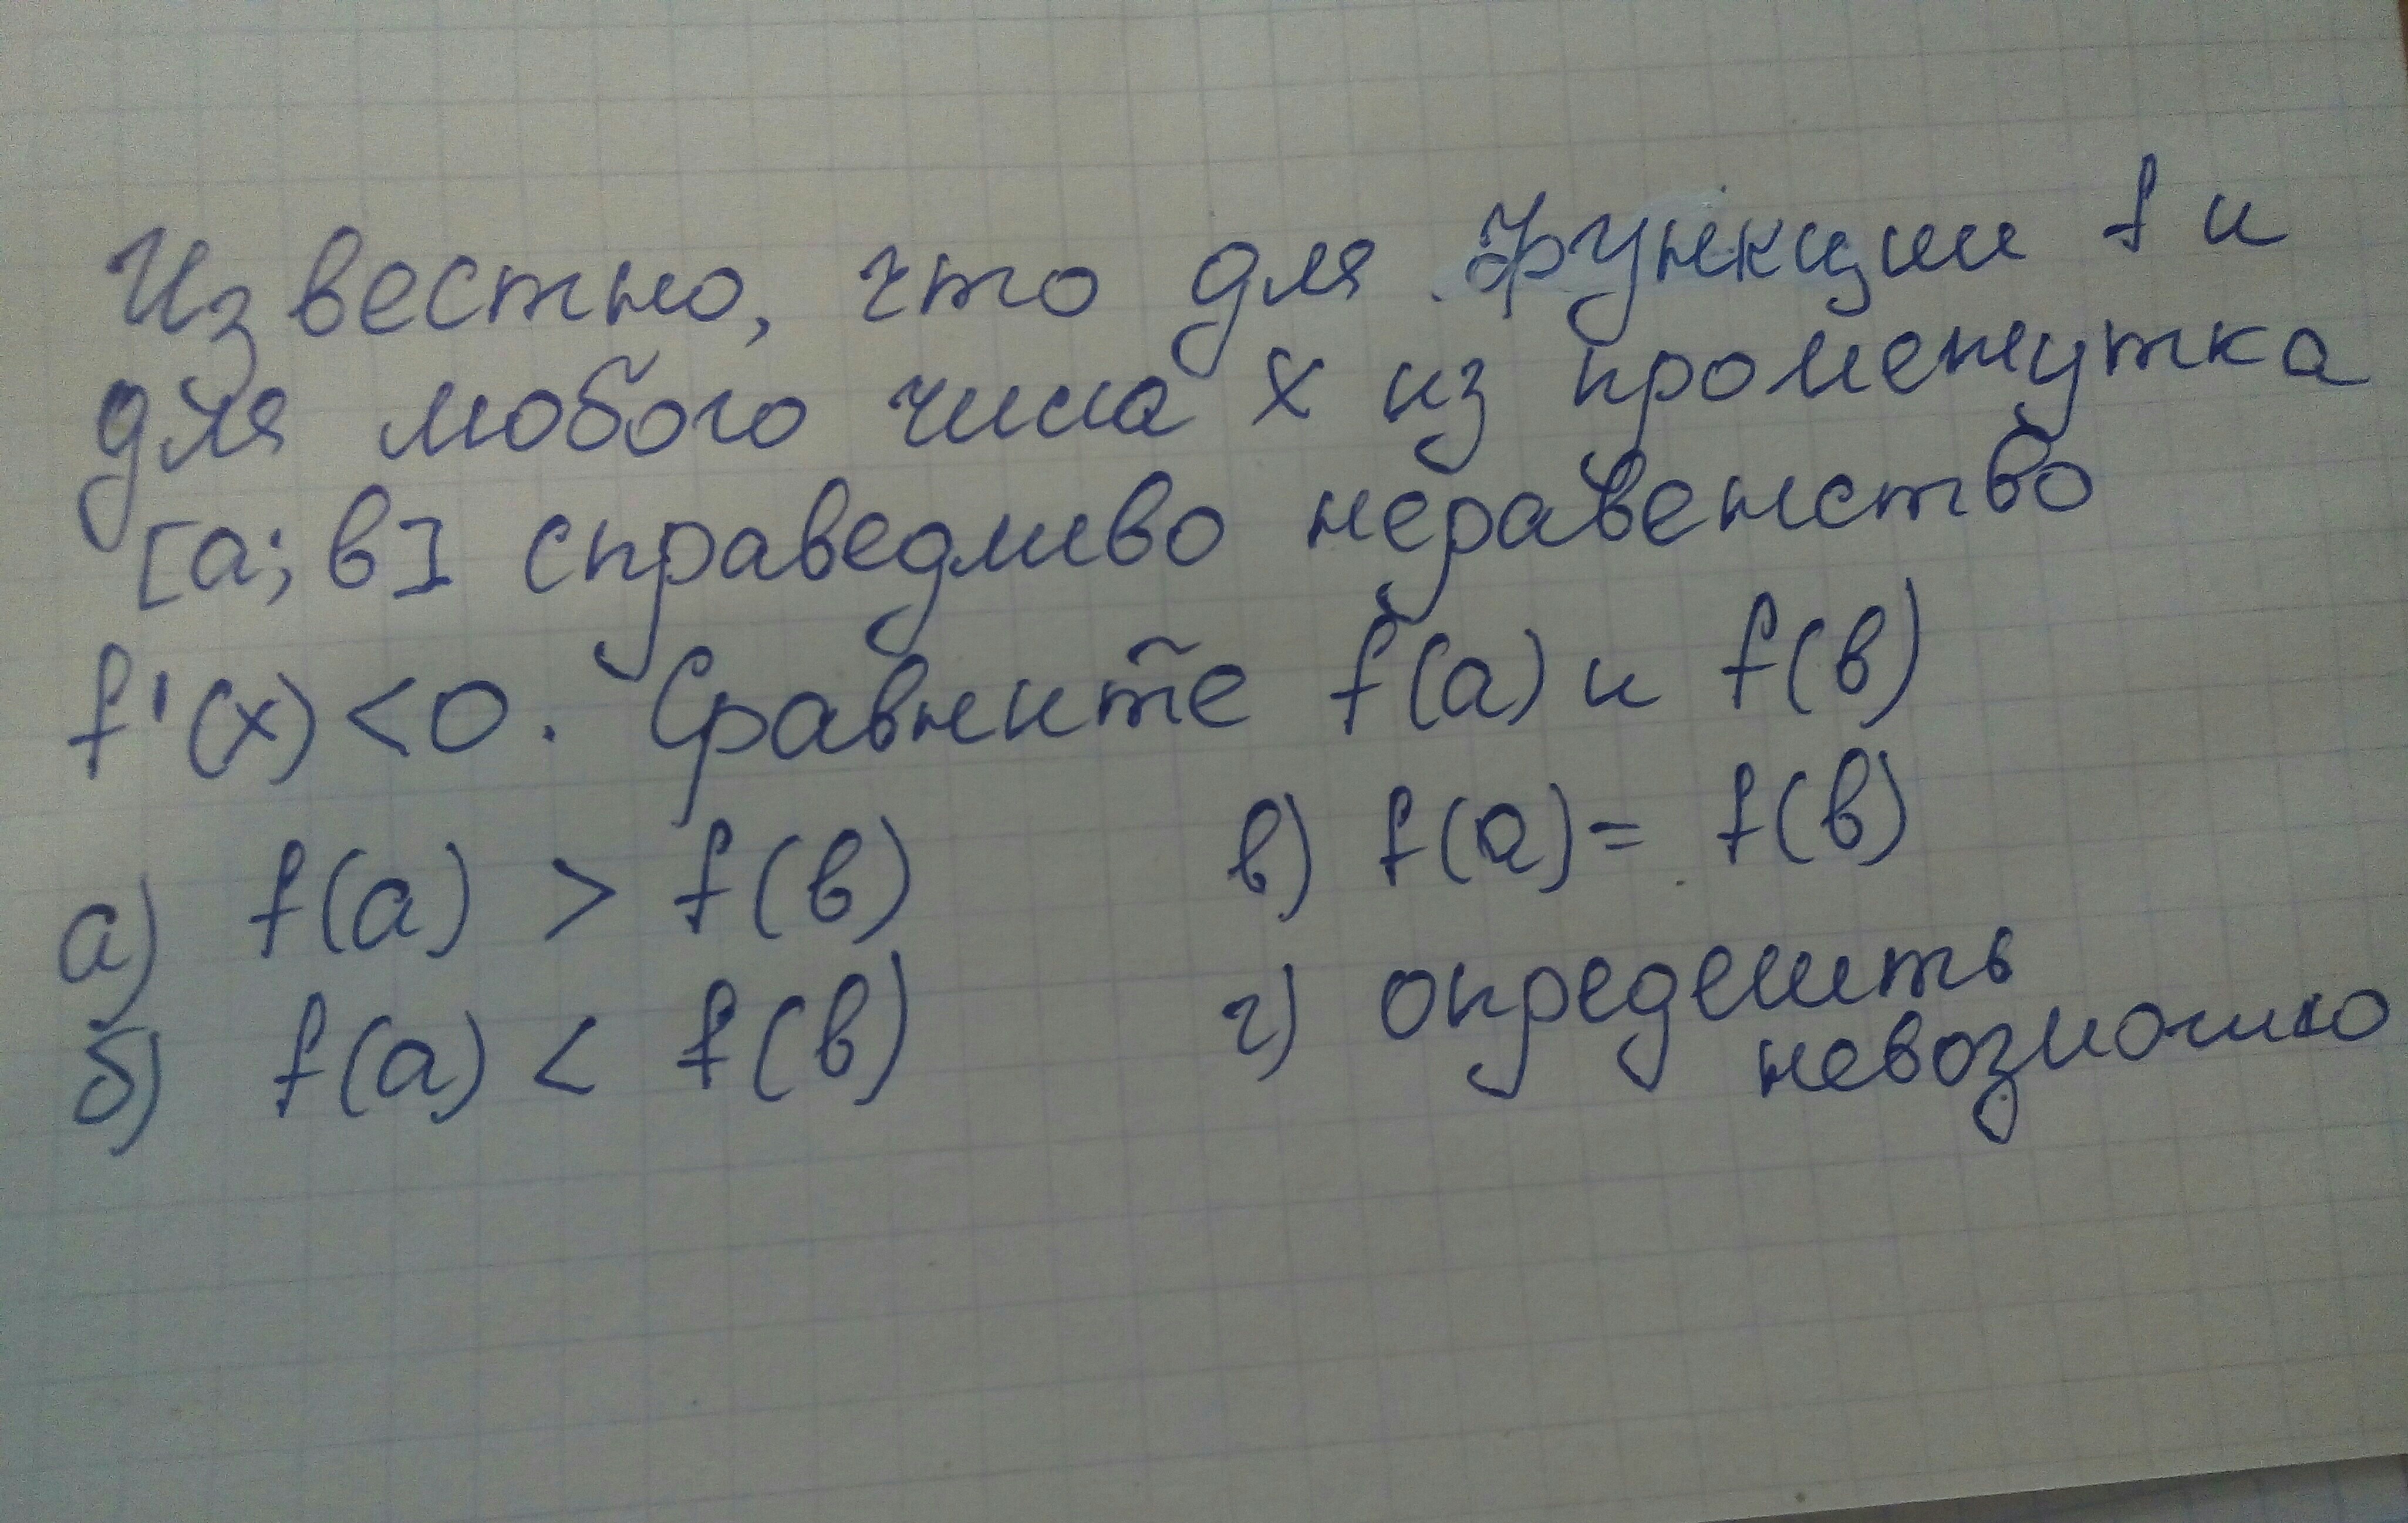 Известно, что для функции f и
для любого числа x из промежутка
[a; в] справедливо неравенство
f'(x) < 0. Сравните f(a) и f(в)
а) f(a) > f(в) в) f(a) = f(в)
б) f(a) < f(в) г) определить
невозможно